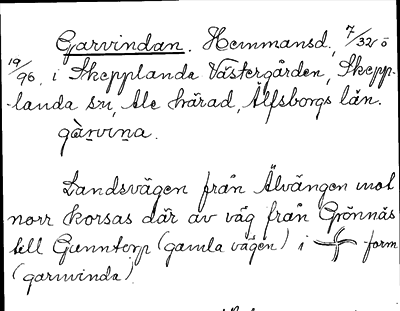 Garvindan. Hemmansd. 7/32 ö
19/96, i Skepplanda Västergården, Skepp-
-landa sn, Ale härad, Älfsborgs län.
gàrviṉa.
Landsvägen från Älvängen mot
norr korsas där av väg från Grönnäs
till Gunntorp (gamla vägen) i form
(garnvinda)